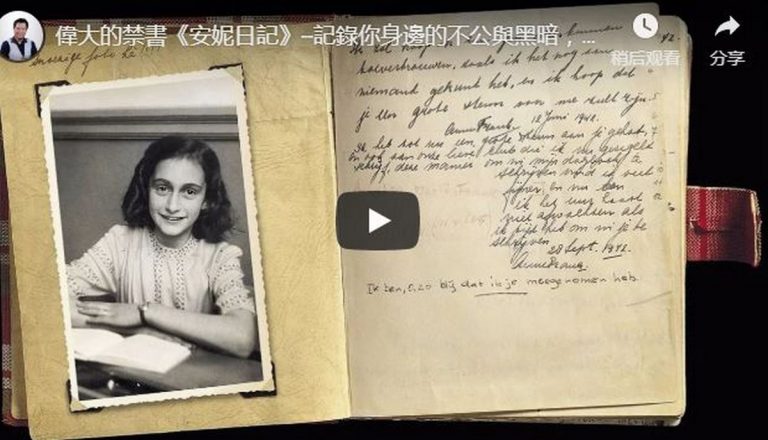 偉大的禁書《安妮日記》–記錄你身邊的不公與黑暗，...
稍后观看
分享
snoezige foto hè !!!
kunnen
toevertrouwen, zoals ik het nog aan
niemand gekund heb, en ik hoop dat
je een grote steun voor me zult zijn.
Anne Frank. 12 Juni 1942.
Ik heb tot nu een grote steun aan je gehad,
en ook aan onze lieve club die ik nu geregeld
schrijf, deze manier om in mijn dagboek te
schrijven vind ik veel
fijner en nu kan
ik het uur haast
niet afwachten als
ik tijd heb om in je te
schrijven.
28 Sept. 1942.
Anne Frank
Ik ben, o, zo blij dat ik je meegenomen heb.